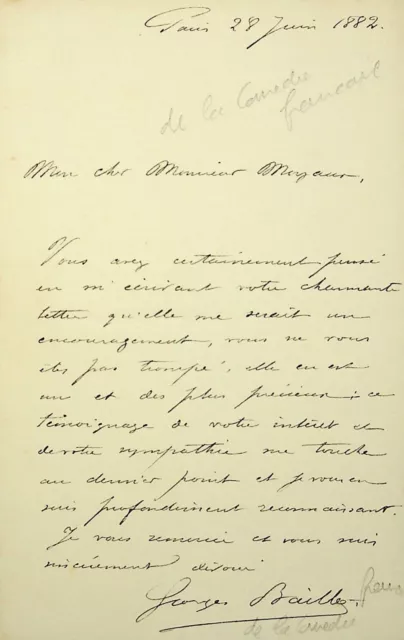 Paris 28 Juin 1882.
de la Comedie
francaise
Mon cher Monsieur
Vous avez certainement pensé
en m'écrivant votre charmante
lettre qu'elle me serait un
encouragement, vous ne vous
êtes pas trompé, elle en est
un et des plus précieux ; ce
témoignage de votre intérêt et
de votre sympathie me touche
au dernier point et je vous en
suis profondément reconnaissant.
Je vous remercie et vous suis
sincèrement dévoué
Georges Baillet
de la Comedie